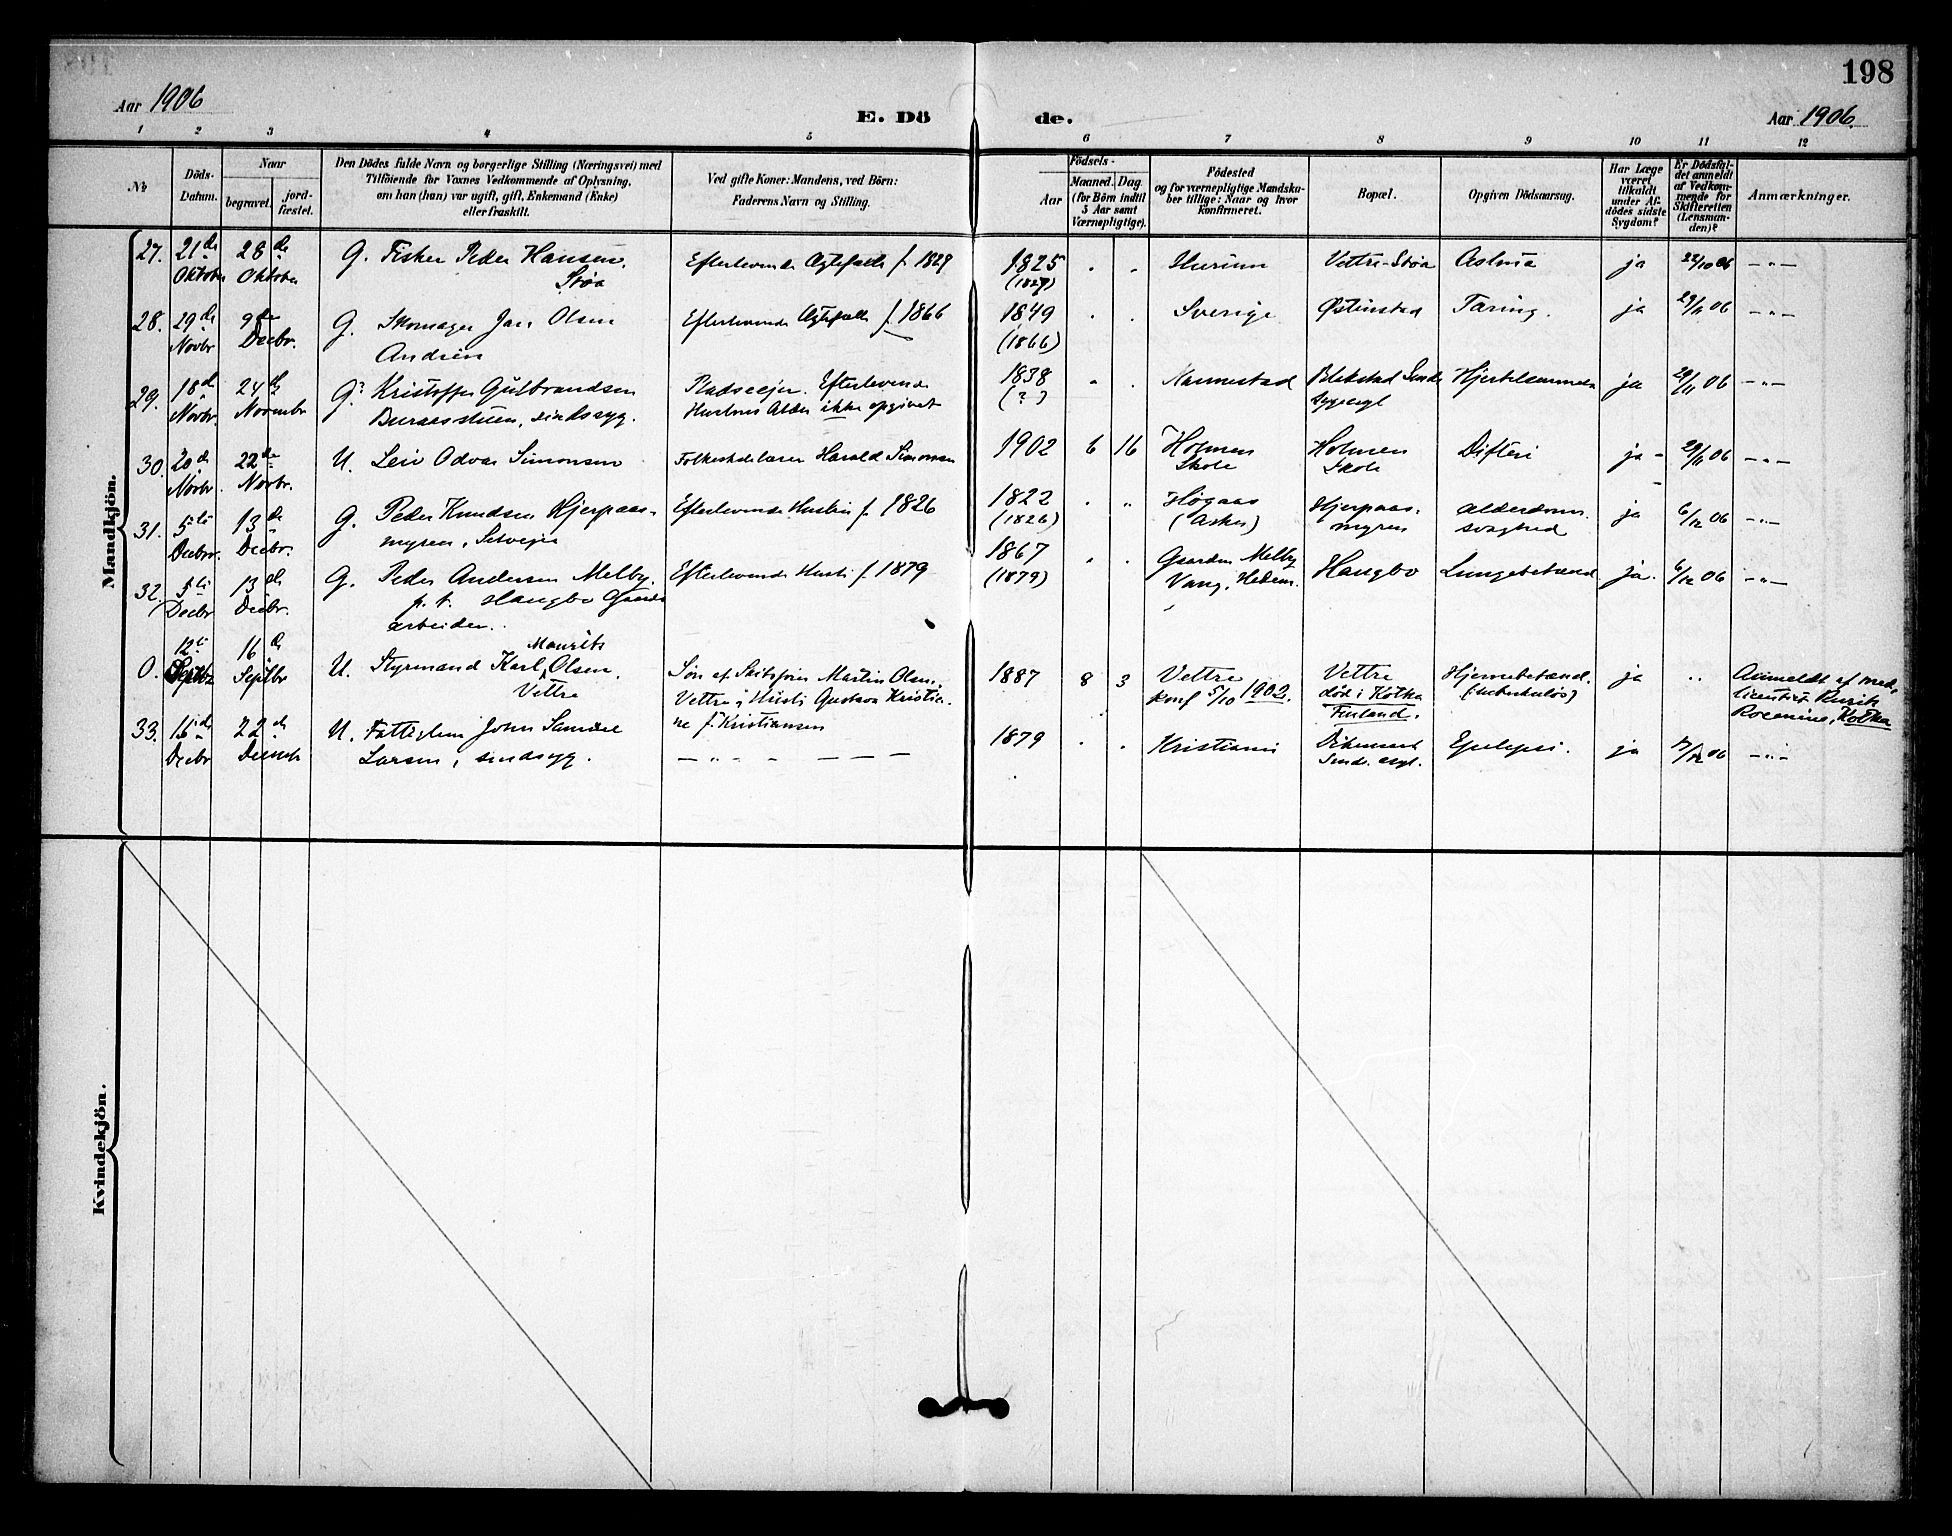 198
Aar 1906
E. Dö de.
Aar 1906.
1 2 3 4 5 6 7 8 9 10 11 12
No
Döds-
Datum.
Naar
begravet.
jord-
fæstet.
Den Dödes fulde Navn og borgerlige Stilling (Næringsvei) med
Tilföiende for Voxnes Vedkommende af Oplysning,
om han (hun) var ugift, gift, Enkemand (Enke)
eller fraskilt.
Ved gifte Koner: Mandens, ved Börn:
Faderens Navn og Stilling.
Födsels-
Aar
Maaned. Dag
(for Börn indtil
5 Aar samt
Værnepligtige).
Födested
og for værnepligtige Mandska-
ber tillige: Naar og hvor
konfirmeret.
Bopæl.
Opgiven Dödsaarsag.
Har Læge
været
tilkaldt
under Af-
dödes sidste
Sygdom?
Er Dödsfal-
det anmeldt
af Vedkom-
mende for
Skifteretten
(Lensman-
den)?
Anmærkninger.
Mandkjön.
27. 21de 28de G. Fisker Peder Hansen, Efterlevende Ægtefælle f. 1829 1825 " " Hurum Vettre-Støa Astma ja 22/10 06 - " -
Oktober Oktober Støa (1829)
28. 29de 9de G. Skomager Jan Olsen Efterlevende Ægtefælle f. 1866 1849 " " Sverige Østenstad Tæring. ja 29/11 06 - " -
Novbr Decbr. Andrén (1866)
29. 18de 24de G. Kristoffer Gulbrandsen Pladseejer. Efterlevende 1838 " " Nannestad Blakstad Sinds Hjertelammelse ja 29/11 06 - " -
Novbr. Novembr Buraasstuen, sindssyg. Hustrues Alder ikke opgivet (?) sygeasyl
30. 20de 22de U. Leiv Odvar Simonsen Folkeskolelærer Harald Simonsen 1902 6 16 Holmen Holmen Difteri ja 29/11 06 - " -
Novbr. Novbr. Skole Skole
31. 5te 13de G. Peder Knudsen Hjerpaas- Efterlevende Hustru f. 1826 1822 " " Høgaas Hjerpaas- Alderdoms- ja 6/12 06 - " -
Decbr. Decbr. myren, Selvejer (1826) (Asker) myren svaghed
32. 5te 13de G. Peder Andersen Melby, Efterlevende Hustr f. 1879 1867 " " Gaarden Melby Haugbo Lungebetænd ja. 6/12 06 - " -
Decbr Decbr. p. t. Haugbo Gaards (1879) Vang, Hedem.
arbeider.
0. 12te 16de U. Styrmand Karl Maurits Olsen, Søn af Skibsfører Martin Olsen 1887 8 3 Vettre Vettre Hjernebetænd. ja " Anmeldt af med.
Septbr Septbr Vettre Vettre i Hustr Gustava Kristia- konf 5/10 1902. død i Kotka (tuberkuløs) licentiat
ne f. Kristiansen Finland. Kotka
33. 16de 22de U. Fattiglem John Samuel 1879 " " Kristiania Dikemark Epilepsi. ja 17/12 06 - " -
Decbr Decembr Larsen, sindssyg. - " - " - - - Sinds. asyl.
Kvindekjön.